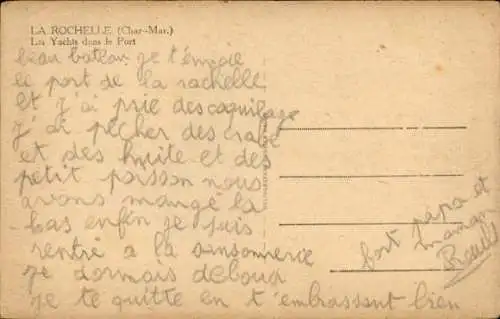 LA ROCHELLE (Char.-Mar.)
Les Yachts dans le Port
beau bateau je t'envoie
le port de la rachelle
et j'ai prie des coquillage
j'ai pêcher des crabe
et des huite et des
petit poisson nous
avons mangé la
bas enfin je suis
rentré a la sansonnerie
je dormais deboud
je te quitte en t'embrassent bien
fort papa et
maman